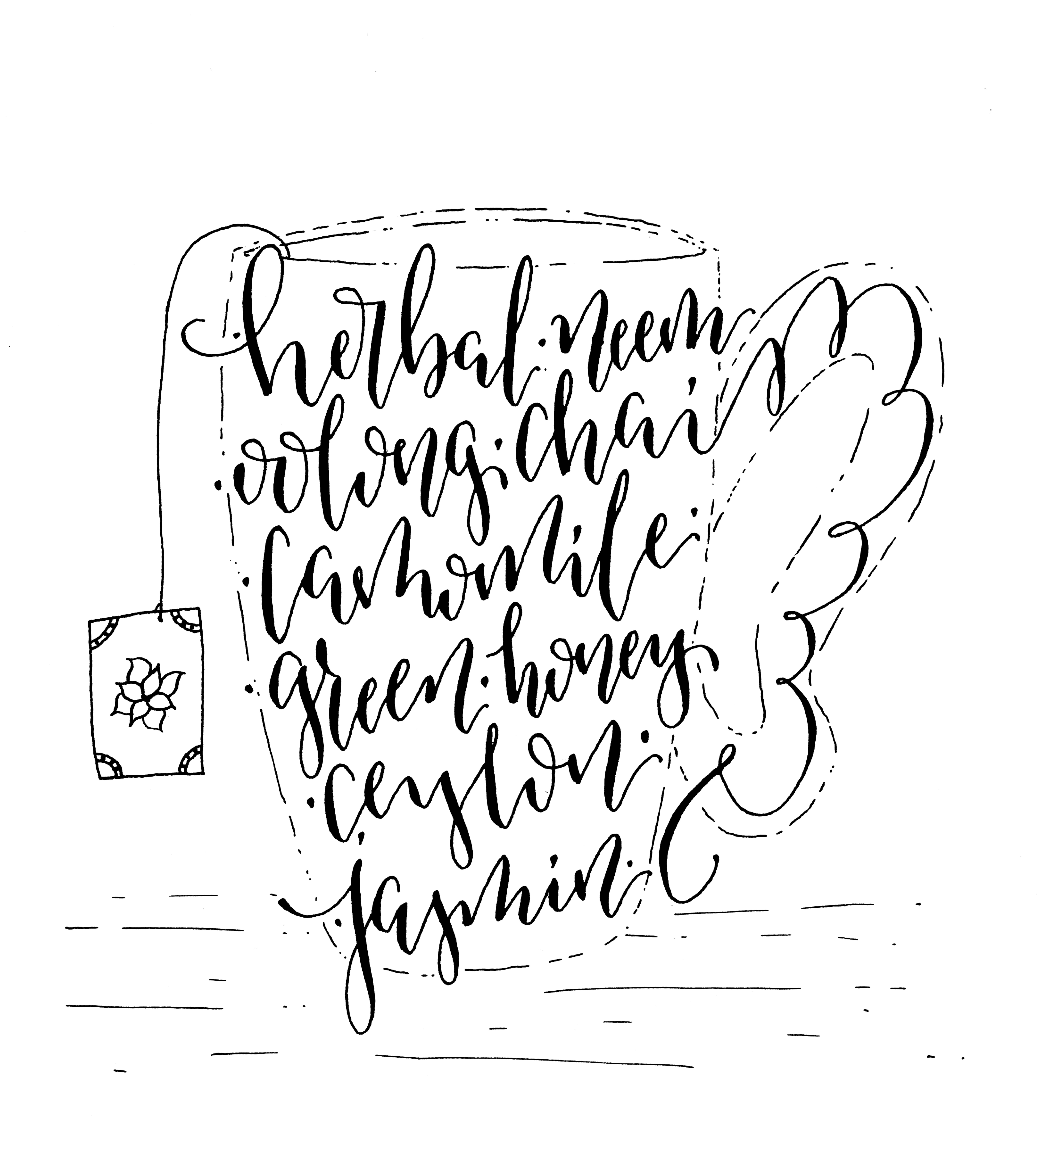 herbal · neem
· oolong · chai
· camomile ·
· green · honey
· ceylon ·
· jasmin ·